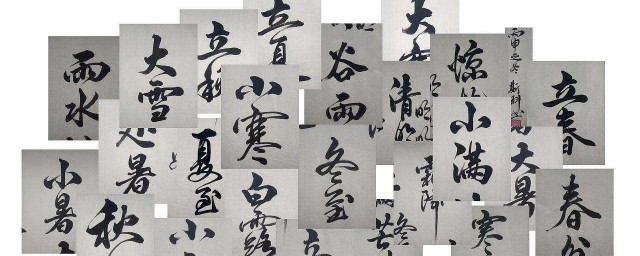 雨水
大雪
立秋
立夏
谷雨
大
清明
惊
丙申之冬
立春
小寒
小满
处暑
夏至
冬至
霜降
大暑
小暑
秋
小
白露
立
芒
寒
春分